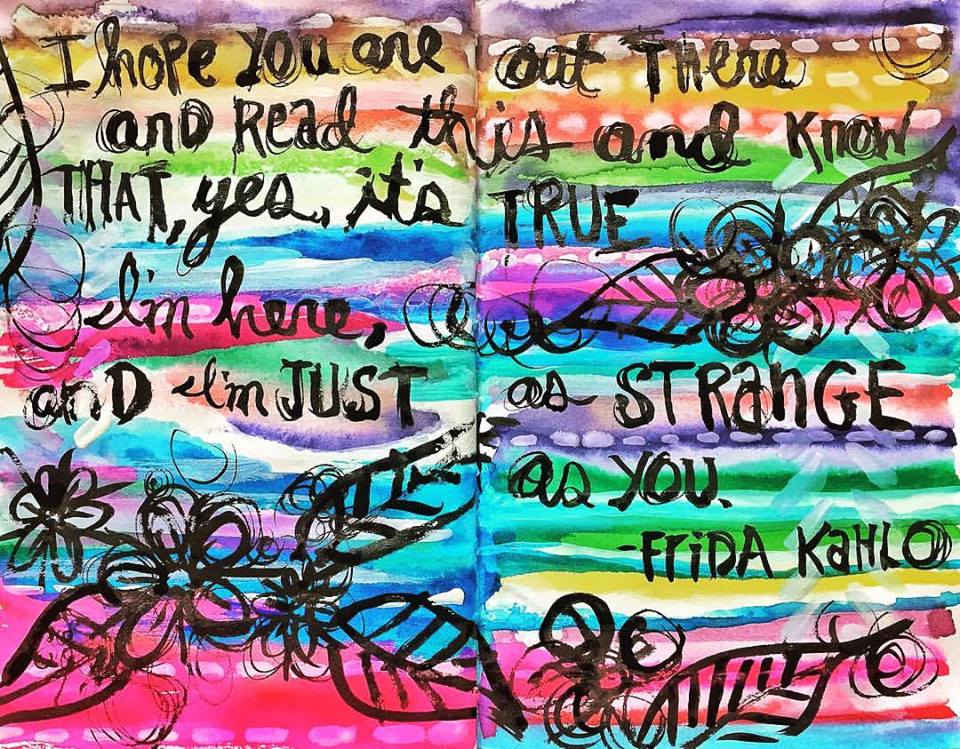 I hope You are out THere
anD Read this and Know
THAT, yes, it's TRUE
I'm here,
anD I'm JUST as STRanGE
as YOU.
-FriDA KaHLO